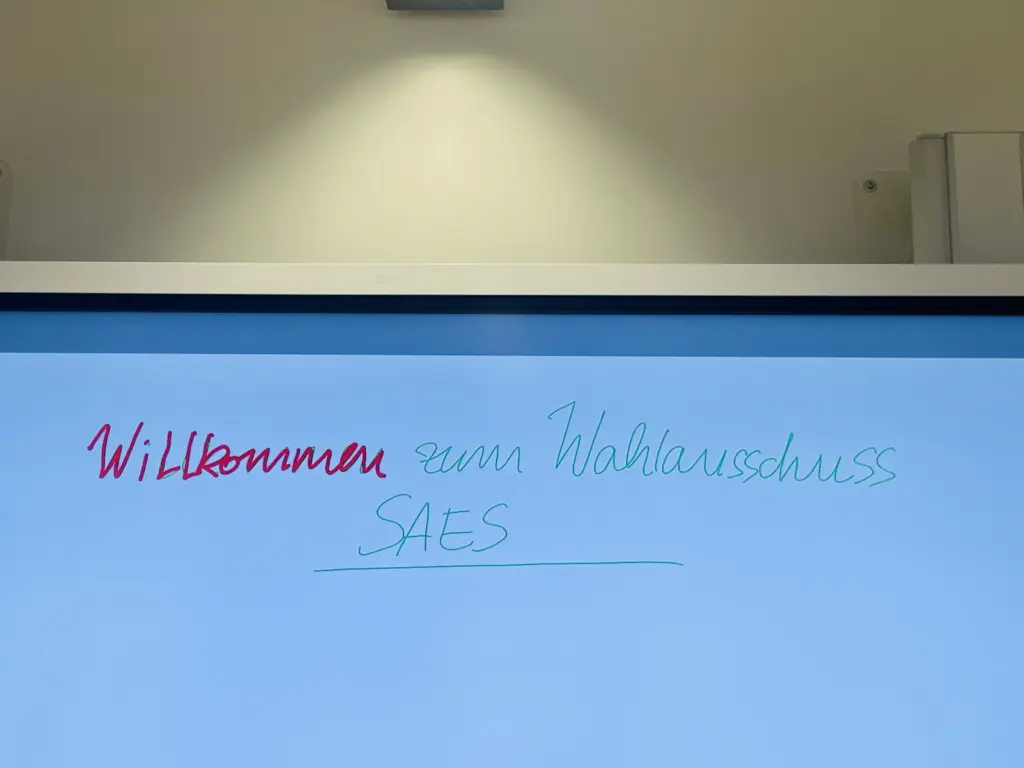 Willkommen zum Wahlausschuss
SAES